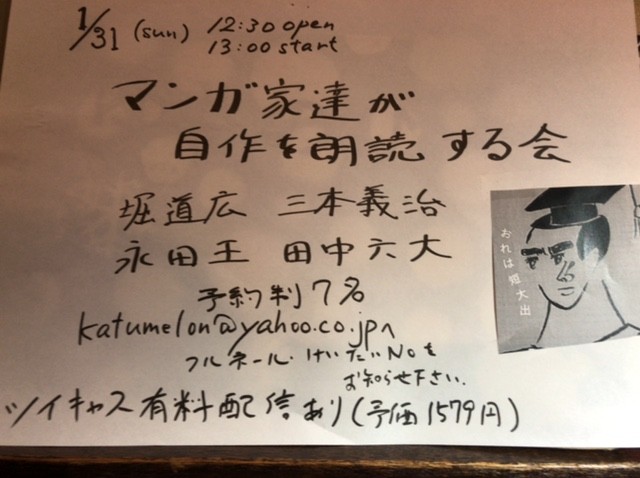 1/31 (sun) 12:30 open
13:00 start
マンガ家達が
自作を朗読する会
堀道広 三本義治
永田王 田中六大
予約制7名
katumelon@yahoo.co.jpへ
フルネール・けいたいNoを
お知らせ下さい.
ツイキャス有料配信あり(予価1579円)
おれは姫大出